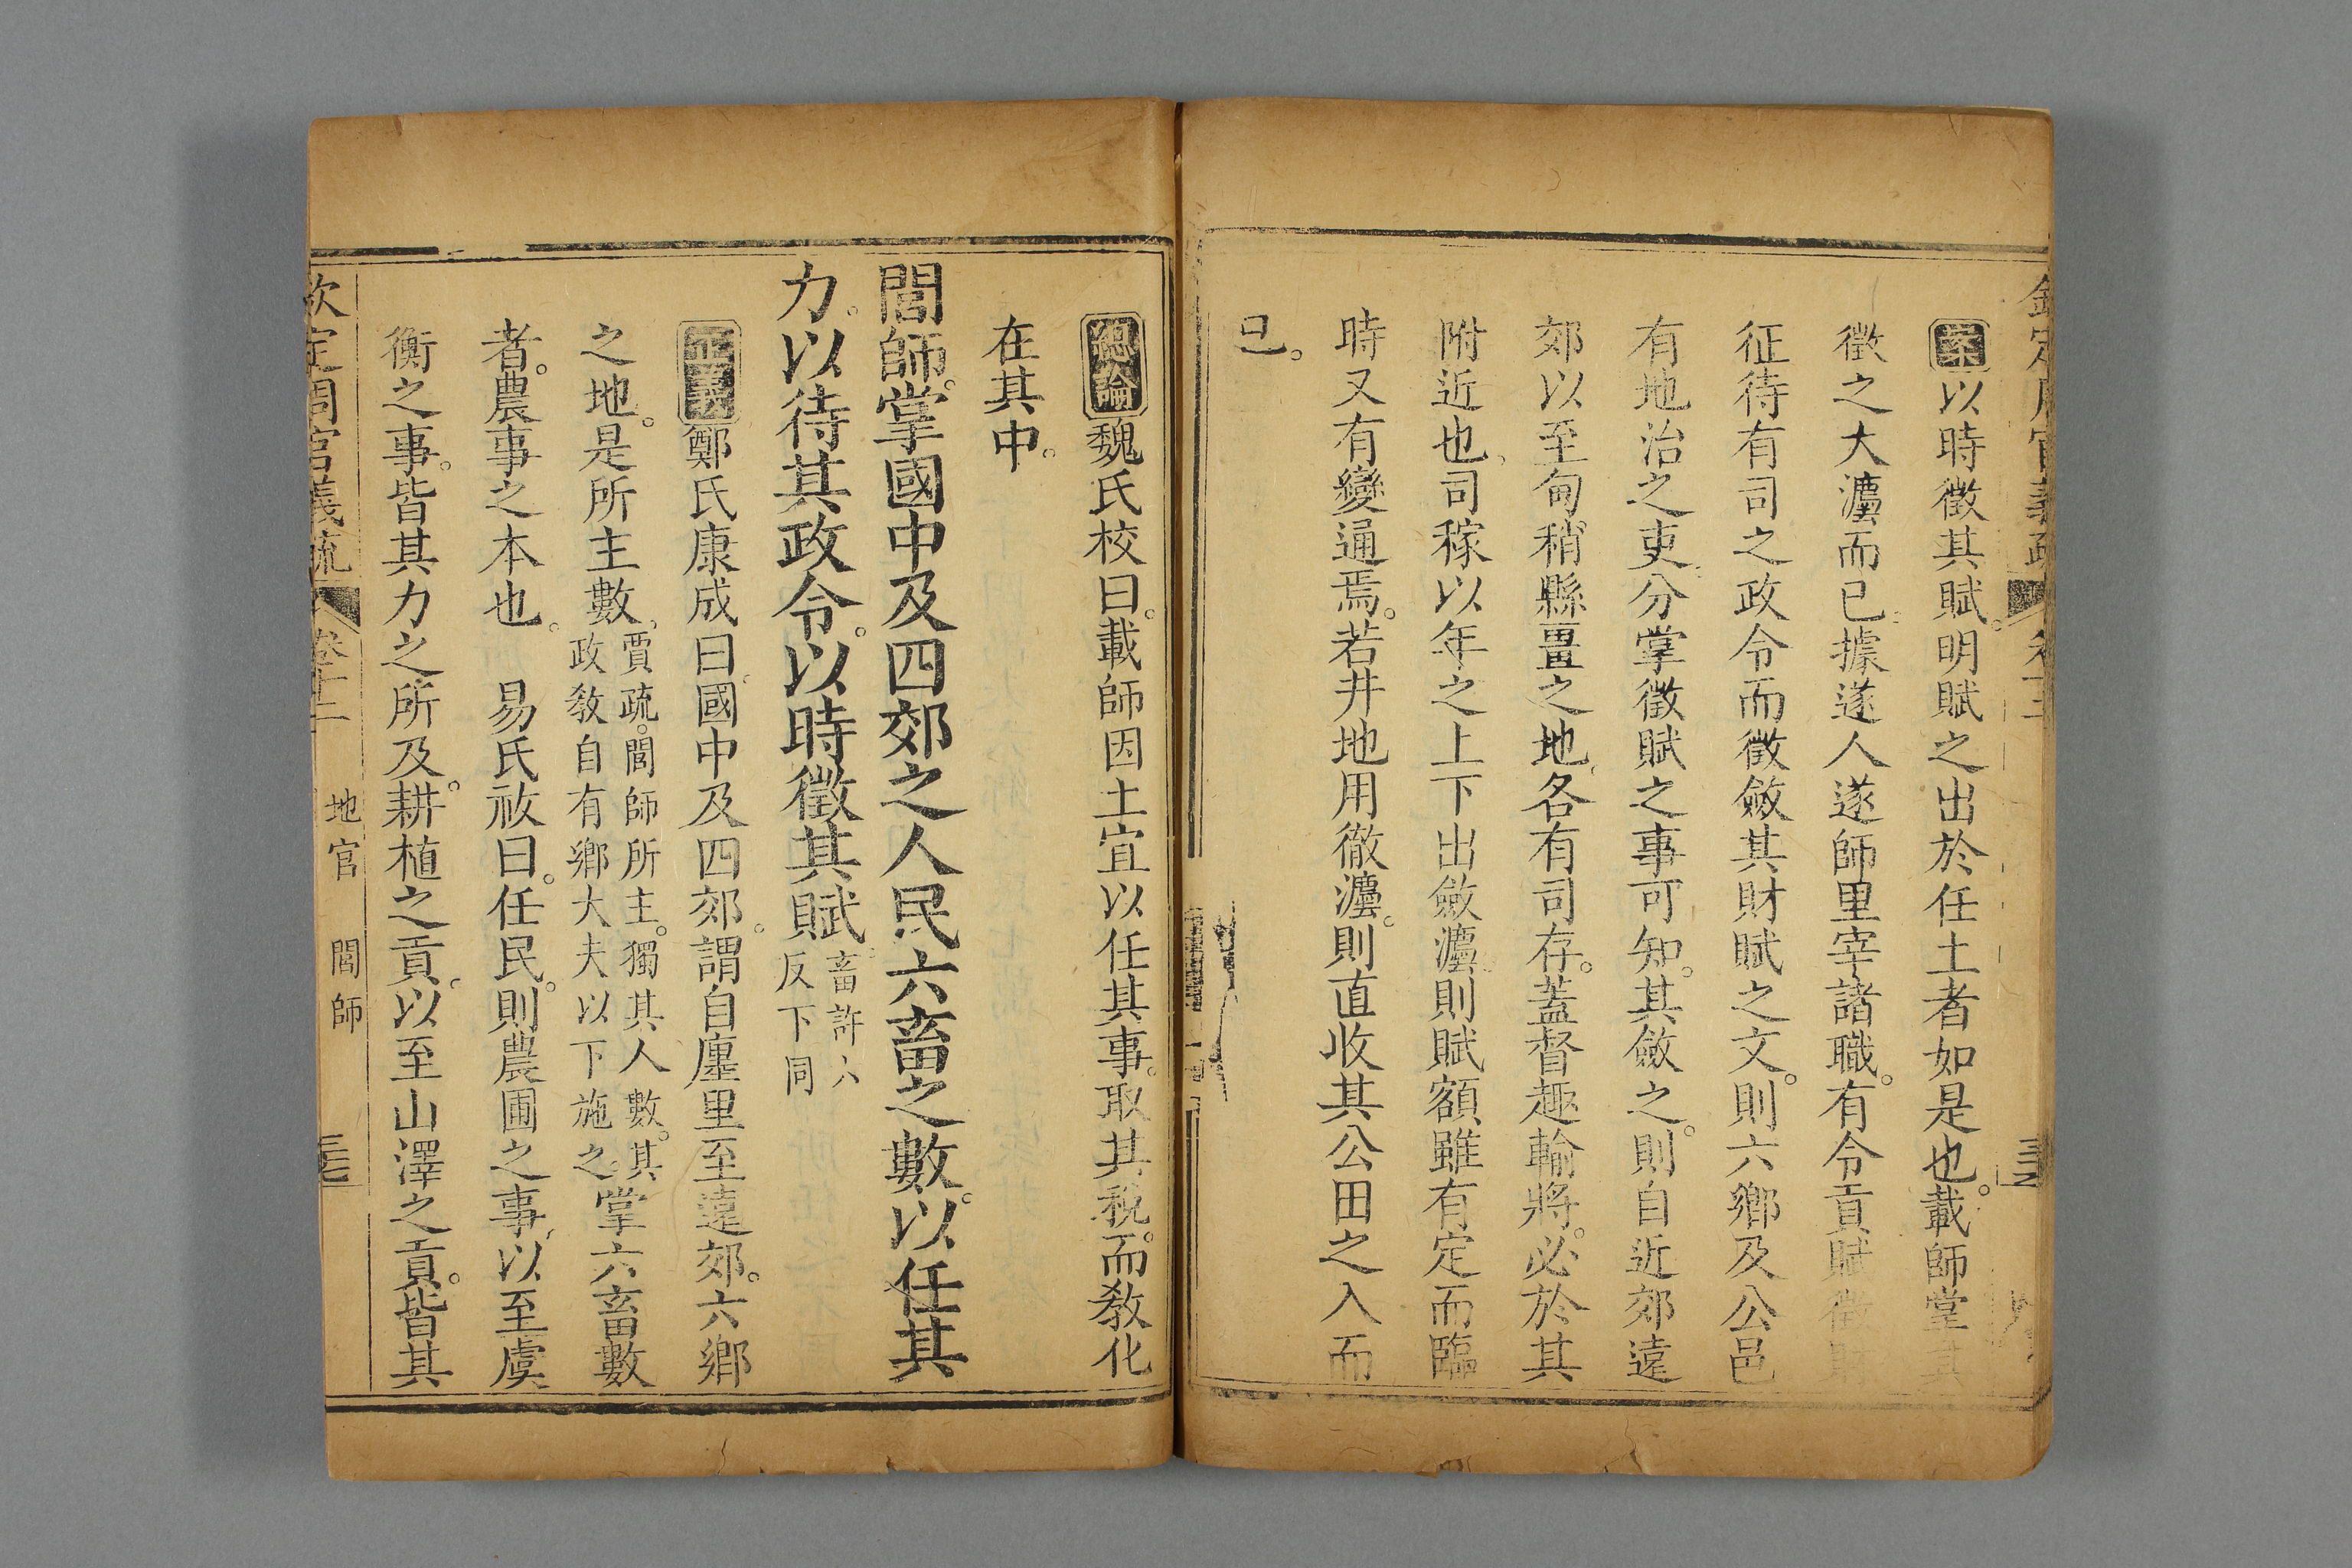 案以時徵其賦。明賦之出於任土者如是也。載師掌其
徵之大灋而已。據遂人遂師里宰諸職。有令貢賦徵財
征待有司之政令而徵斂其財賦之文。則六鄉及公邑
有地治之吏。分掌徵賦之事可知。其斂之。則自近郊遠
郊以至甸稍縣畺之地。各有司存。蓋督趣輸將。必於其
附近也。司稼以年之上下出斂灋。則賦額雖有定而臨
時又有變通焉。若井地用徹灋。則直收其公田之入而
已。
總論魏氏校曰。載師因土宜以任其事。取其稅。而教化
在其中。
閭師。掌國中及四郊之人民六畜之數。以任其
力。以待其政令。以時徵其賦。畜許六反下同
正義鄭氏康成曰。國中及四郊。謂自廛里至遠郊。六鄉
之地。是所主數。賈疏。閭師所主。獨其人數。其政教自有鄉大夫以下施之。掌六畜數
者。農事之本也。 易氏祓曰。任民。則農圃之事。以至虞
衡之事。皆其力之所及。耕植之貢。以至山澤之貢。皆其
欽定周官義疏 卷十二 地官 閭師